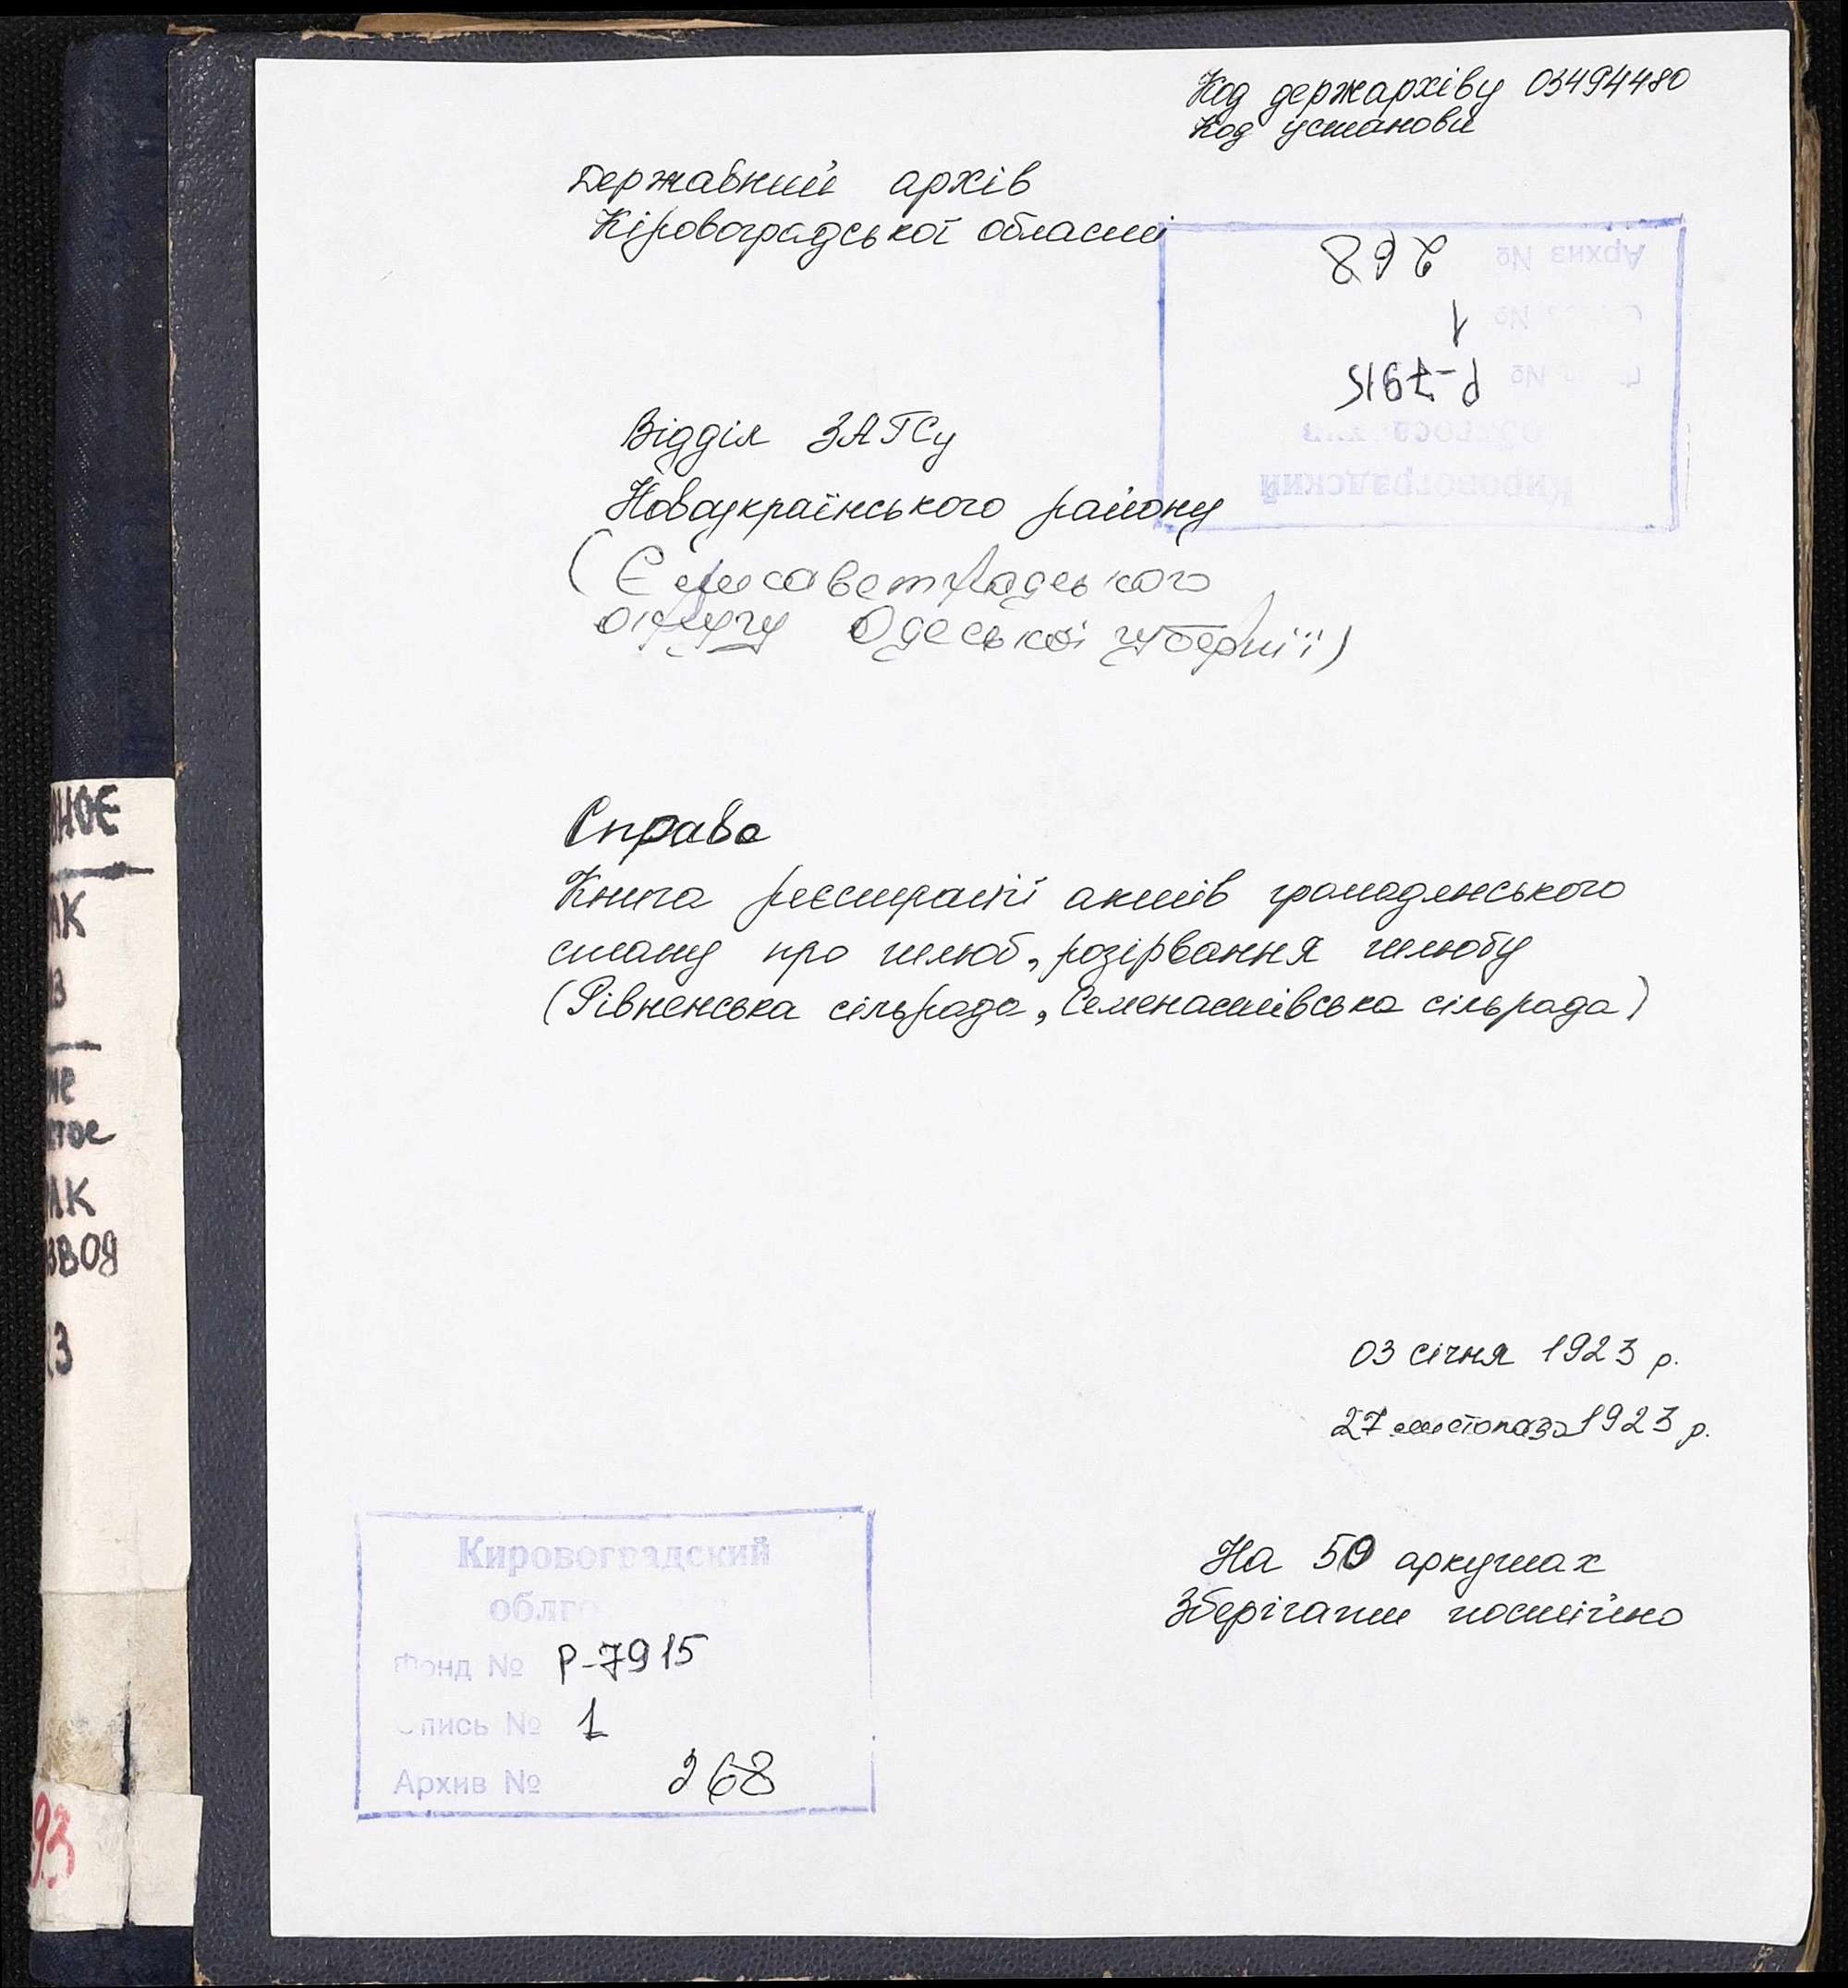 Код держархіву 03494480
Код установи
Державний архів
Кіровоградської області
Архив № 268
№ 1
№ Р-7915
Кировоградский
Відділ ЗАГСу
Новоукраїнського району
(Єлисаветградського
округу Одеської губернії)
Справа
Книга реєстрації актів громадянського
стану про шлюб, розірвання шлюбу
(Рівненська сільрада, Семенастівська сільрада)
03 січня 1923 р.
27 листопада 1923 р.
На 50 аркушах
Зберігати постійно
Кировоградский
облго
Фонд № Р-7915
опись № 1
Архив № 268
НОЕ
АК
В
НЕ
СТОЕ
АК
ЗВОД
3
93